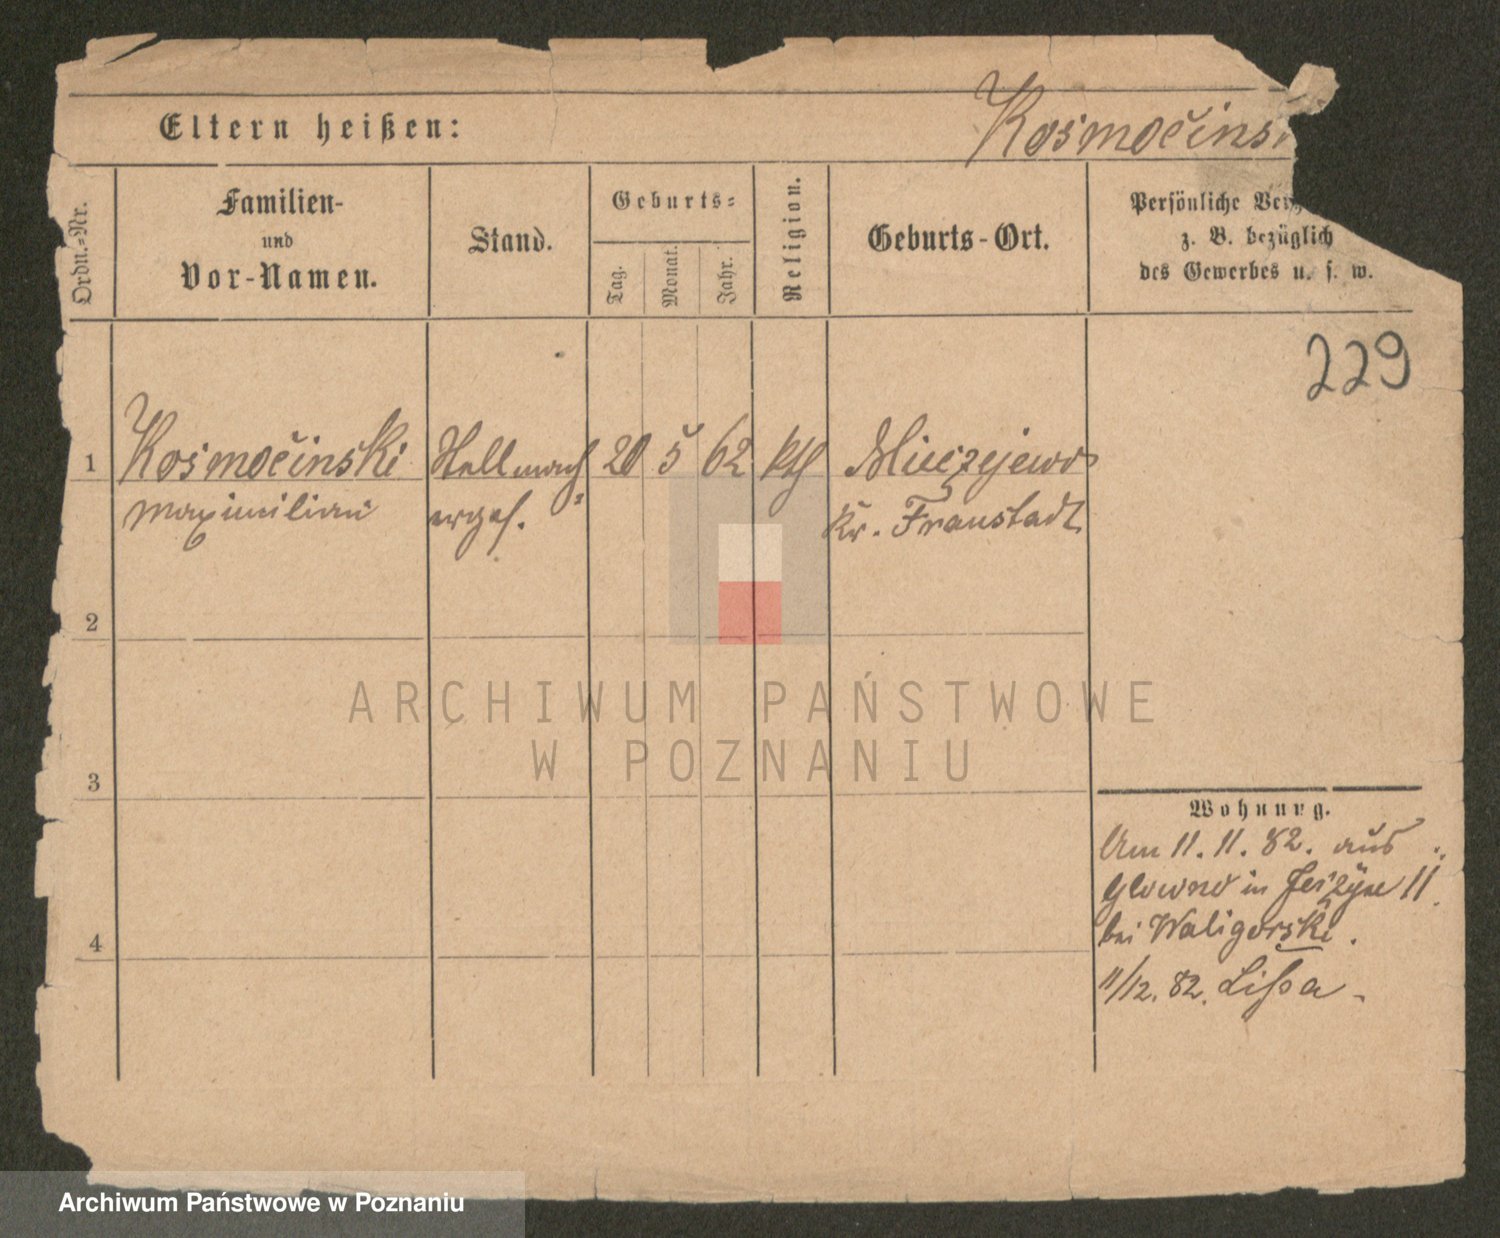 Eltern heißen:
Kosmočins
Ordn.=Nr.
Familien-
und
Vor-Namen.
Stand.
Geburts=
Tag.
Monat.
Jahr.
Religion.
Geburts-Ort.
Persönliche
z. B. bezüglich
des Gewerbes u. s. w.
229
1 Kosmočinski Stellmach 20 5 62 kth
Maximilian ergs. Kr. Fraustadt
2
ARCHIWUM PAŃSTWOWE
W POZNANIU
3
Wohnung.
Am 11. 11. 82. aus
Glowno in Jerzyce 11.
bei Waligorski.
4
11/12. 82. Lissa.
Archiwum Państwowe w Poznaniu